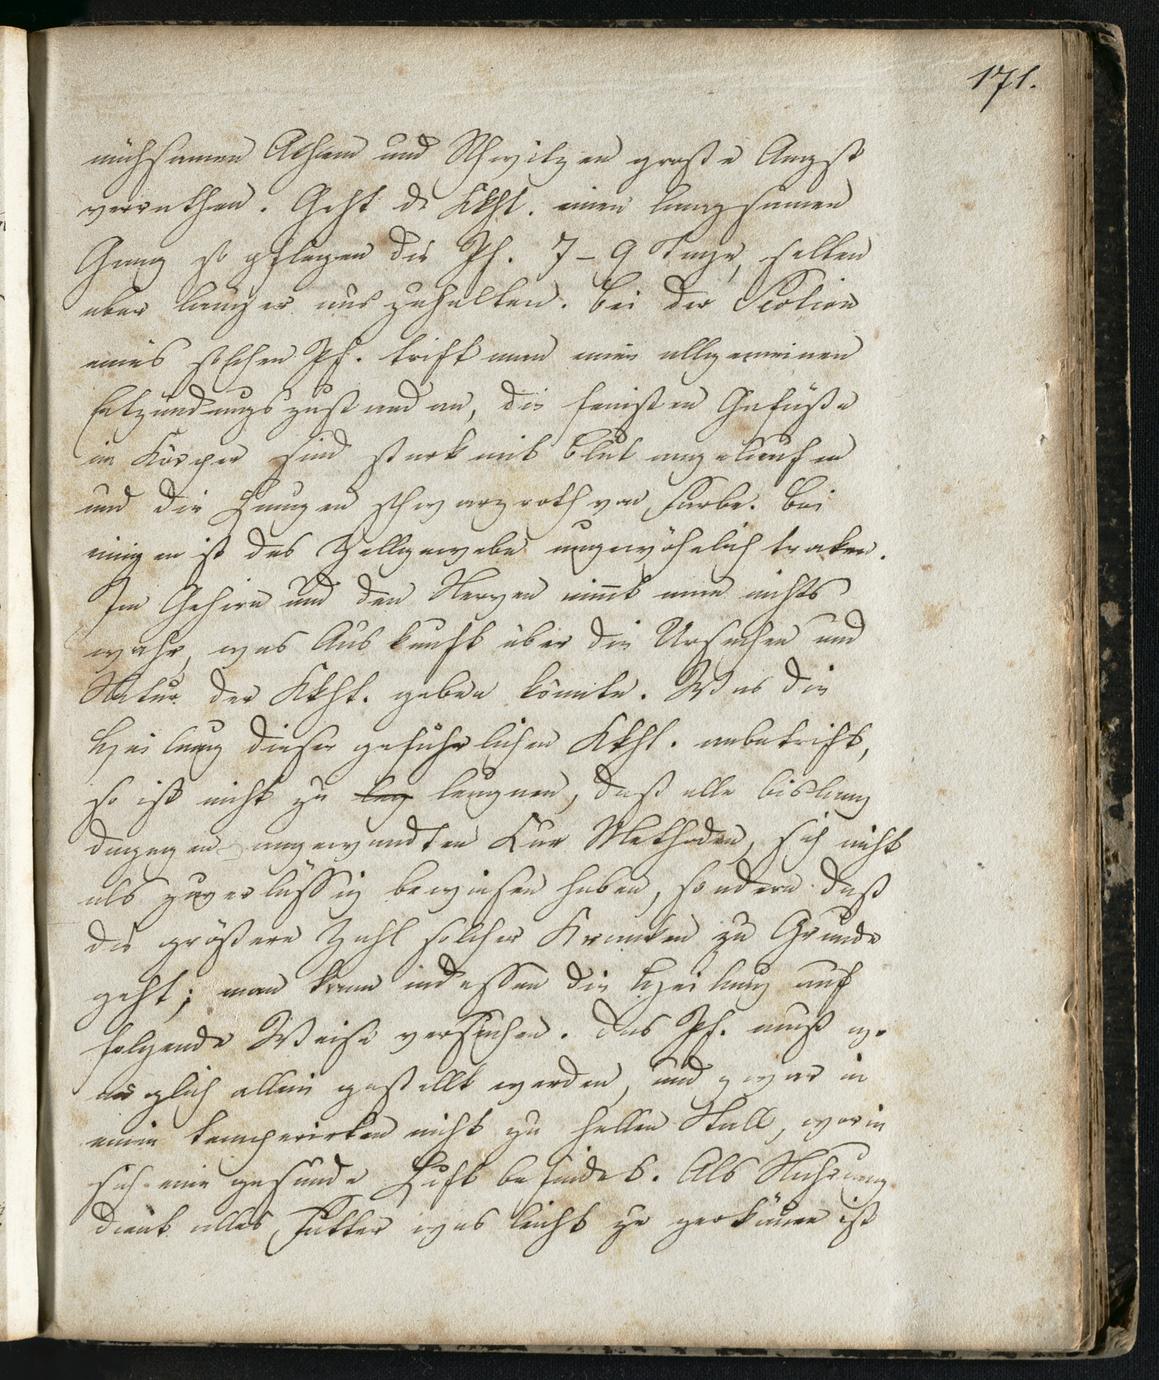 171.
mühsamen Athem und Schwitzen große Angst
verrathen. Geht d. Kkht. einen langsamen
Gang so pflegen die Pf. 7–9 Tage, selten
aber länger auszuhalten. Bei der Section
eines solchen Pf. trift man einen allgemeinen
Entzündungszustand an, die feinsten Gefäße
im Körper sind stark mit Blut angelaufen
und die Lungen schwarzroth von Farbe. Bei
einigen ist das Zellgewebe ungewöhnlich troken.
Im Gehirn und den Nerven nimt man nichts
wahr, was Auskunft über die Ursachen und
Natur der Kkht. geben könnte. Was die
Heilung dieser gefährlichen Kkht. anbetrift,
so ist nicht zu leug leugnen, daß alle bislang
dagegen angewandten Kur Methoden, sich nicht
als zuverlässig bewiesen haben, sondern daß
die größere Zahl solcher Kranken zu Grunde
geht; man kann indessen die Heilung auf
folgende Weise versuchen. Das Pf. muß wo
möglich allein gestellt werden, und zwar in
einen temperirten nicht zu hellen Stall, worin
sich eine gesunde Luft befindet. Als Nahrung
dient alles Futter was leicht zu zerkäuen ist